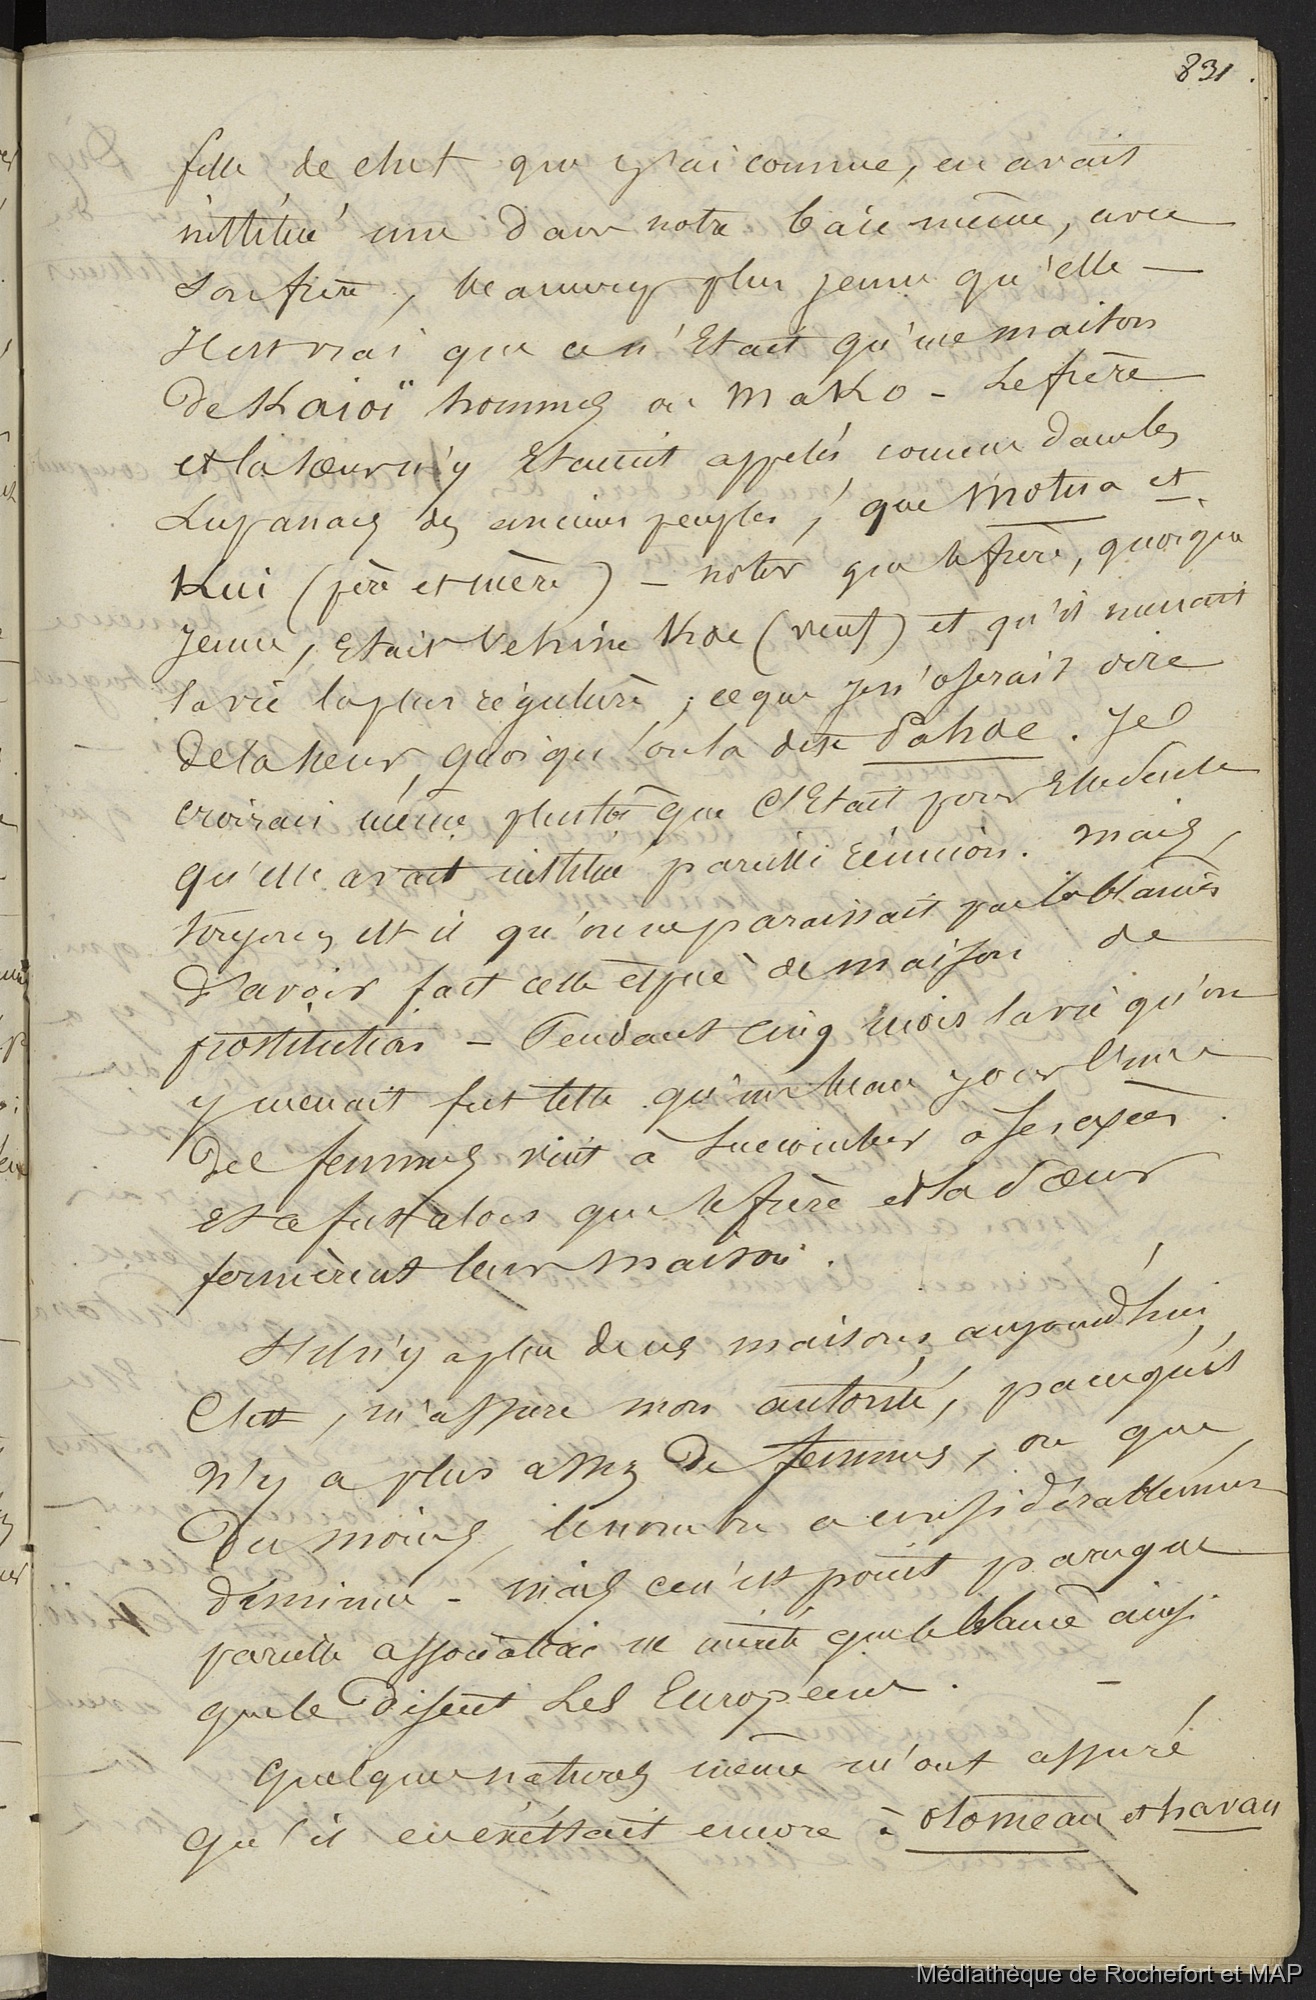 831
fille de chef que j'ai connue, en avait
institué une dans notre baie même, avec
son frère, beaucoup plus jeune qu'elle –
Il est vrai que ce n'Etait qu'une maison
de Kaioï hommes ou mako – Le frère
et la sœur n'y Etaient appelés comme dans les
Lupanars des anciens peuples, que Motua et
Kui (père et mère) – noter que le frère, quoique
jeune, Etait Vehine Koe (veuf) et qu'il menait
la vie la plus régulière ; ce que je n'oserais dire
de la sœur, quoiqu'on la dise Pahoe. Je
croirais même plutôt que C'Etait pour Elle seule
qu'elle avait institué pareille réunion. Mais,
toujours est il qu'on ne paraissait pas la blamer
d'avoir fait cette espèce de maison de
prostitution – Pendant cinq mois la vie qu'on
y menait fut telle qu'un beau jour l'une
des femmes vint à succomber à ses excès.
Et ce fut alors que le frère et la sœur
fermèrent leur maison.
Il n'y a plus de ces maisons aujourd'hui
C'est, m'assure mon autorité, parcequ'il
n'y a plus assez de femmes, ou que
Du moins, le nombre a considérablement
diminué – mais ce n'est point parceque
pareille association ne mérite que le blame ainsi
que le disent Les Européens. –
Quelques naturels même m'ont assuré
qu'il en existait encore à otomeau et havau
Médiathèque de Rochefort et MAP